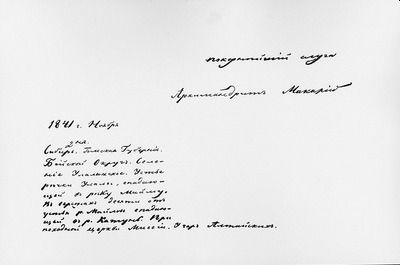 покорнѣйшій слуга
Архимандритъ Макарій
1841 г. Ноября
дня.
Сибирь. Томская Губернія.
Бійскій Округъ. Селе-
ніе Улалинское. Устье
рѣчки Улалы, впадаю-
щей въ рѣку Майму.
Въ верстахъ десяти отъ
устья р. Маймы впадаю-
щей въ р. Катунь. При
походной церкви Миссіи. У горъ Алтайскихъ.